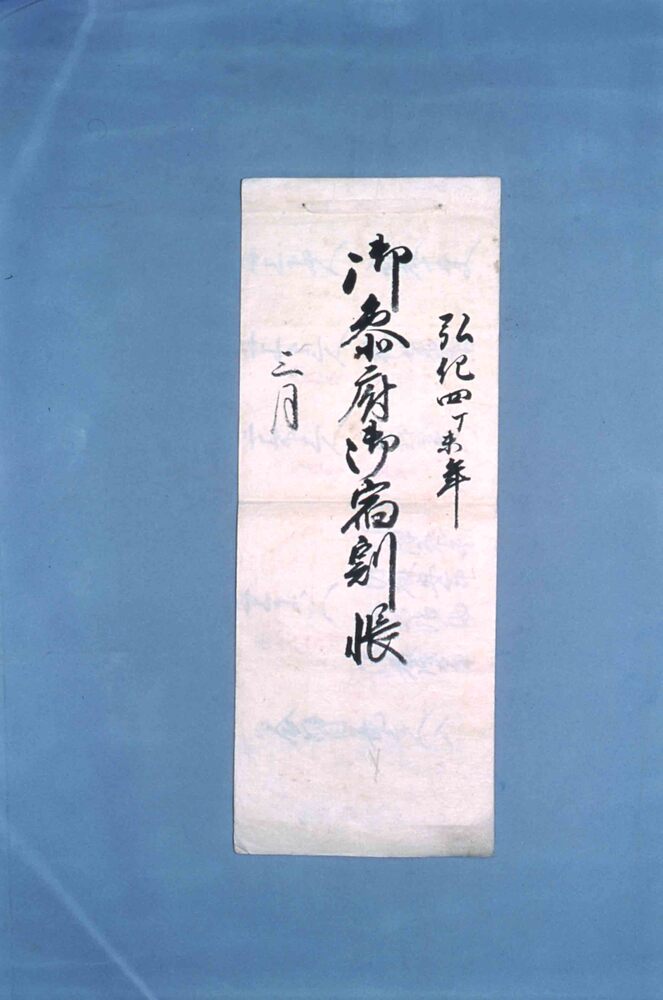 弘化四丁未年
御参府御宿割帳
三月